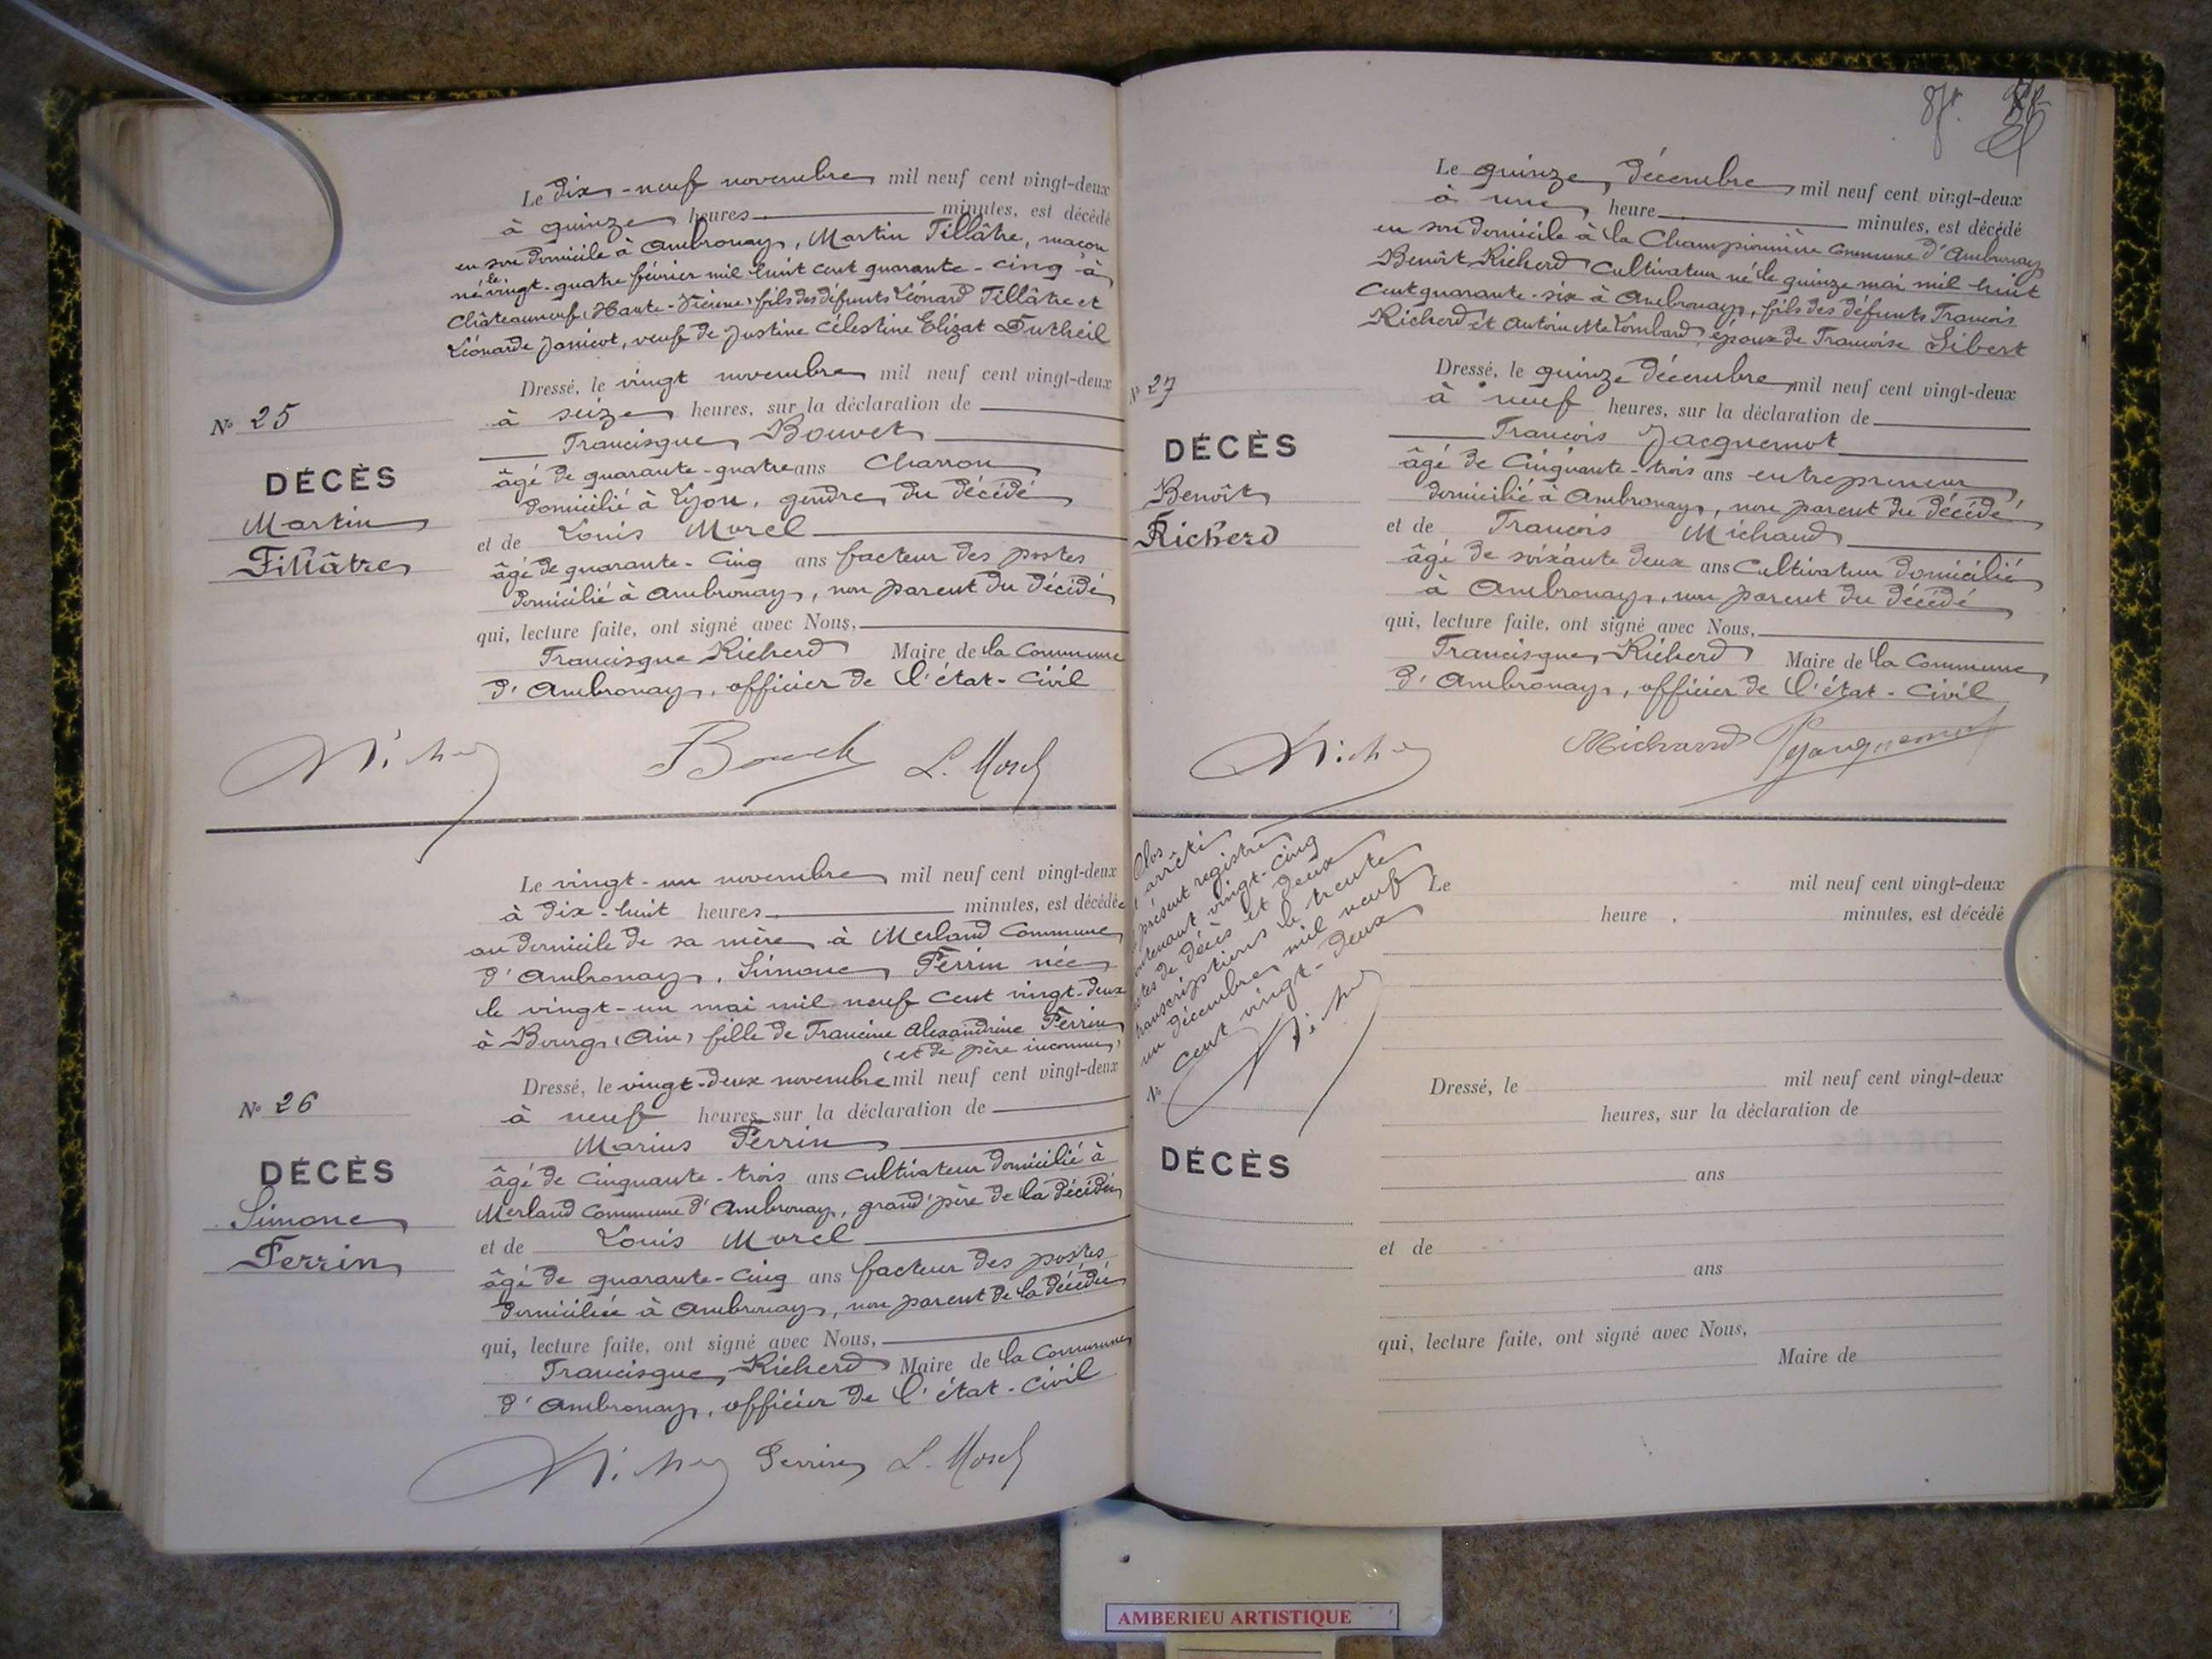 Le dix-neuf novembre mil neuf cent vingt-deux
à quinze heures minutes, est décédé
en son domicile à Ambronay, Martin Fillâtre, maçon
né le vingt-quatre février mil huit cent quarante-cinq à
Châteauneuf (Haute-Vienne) fils des défunts Léonard Fillâtre et
Léonarde Janicot, veuf de Justine Célestine Elizat Dutheil
Dressé, le vingt novembre mil neuf cent vingt-deux
à seize heures, sur la déclaration de
Francisque Bouvet
âgé de quarante-quatre ans Charron
domicilié à Lyon, gendre du décédé
et de Louis Morel
âgé de quarante-cinq ans facteur des postes
domicilié à Ambronay, non parent du décédé
qui, lecture faite, ont signé avec Nous,
Francisque Richerd Maire de la Commune
d'Ambronay, officier de l'état-civil
N° 25
DÉCÈS
Martin
Fillâtre
Bouvet L. Morel
Le vingt-un novembre mil neuf cent vingt-deux
à dix-huit heures minutes, est décédée
au domicile de sa mère à Merland Commune
d'Ambronay, Simone Perrin née
le vingt-un mai mil neuf cent vingt-deux
à Bourg (Ain) fille de Francine Alexandrine Perrin
(et de père inconnu)
Dressé, le vingt-deux novembre mil neuf cent vingt-deux
à neuf heures, sur la déclaration de
Marius Perrin
âgé de cinquante-trois ans cultivateur domicilié à
Merland Commune d'Ambronay, grand'père de la décédée
et de Louis Morel
âgé de quarante-cinq ans facteur des postes
domicilié à Ambronay, non parent de la décédée
qui, lecture faite, ont signé avec Nous,
Francisque Richerd Maire de la Commune
d'Ambronay, officier de l'état-civil
N° 26
DÉCÈS
Simone
Perrin
Perrin L. Morel
Le quinze décembre mil neuf cent vingt-deux
à une heure minutes, est décédé
en son domicile à la Championnière Commune d'Ambronay
Benoît Richerd Cultivateur né le quinze mai mil huit
cent quarante-six à Ambronay, fils des défunts François
Richerd et Antoinette Lombard, époux de Françoise Sibert
Dressé, le quinze décembre mil neuf cent vingt-deux
à neuf heures, sur la déclaration de
François Jacquemot
âgé de cinquante-trois ans entrepreneur
domicilié à Ambronay, non parent du décédé
et de François Michaud
âgé de soixante deux ans Cultivateur domicilié
à Ambronay, non parent du décédé
qui, lecture faite, ont signé avec Nous,
Francisque Richerd Maire de la Commune
d'Ambronay, officier de l'état-civil
N° 27
DÉCÈS
Benoît
Richerd
Michaud Jacquemot
Clos
arrêté
présent registre
contenant vingt-cinq
actes de décès et deux
transcriptions le trente
un décembre mil neuf
cent vingt-deux
N°
DÉCÈS
Le mil neuf cent vingt-deux
heure minutes, est décédé
Dressé, le mil neuf cent vingt-deux
heures, sur la déclaration de
ans
et de
ans
qui, lecture faite, ont signé avec Nous,
Maire de
AMBERIEU ARTISTIQUE